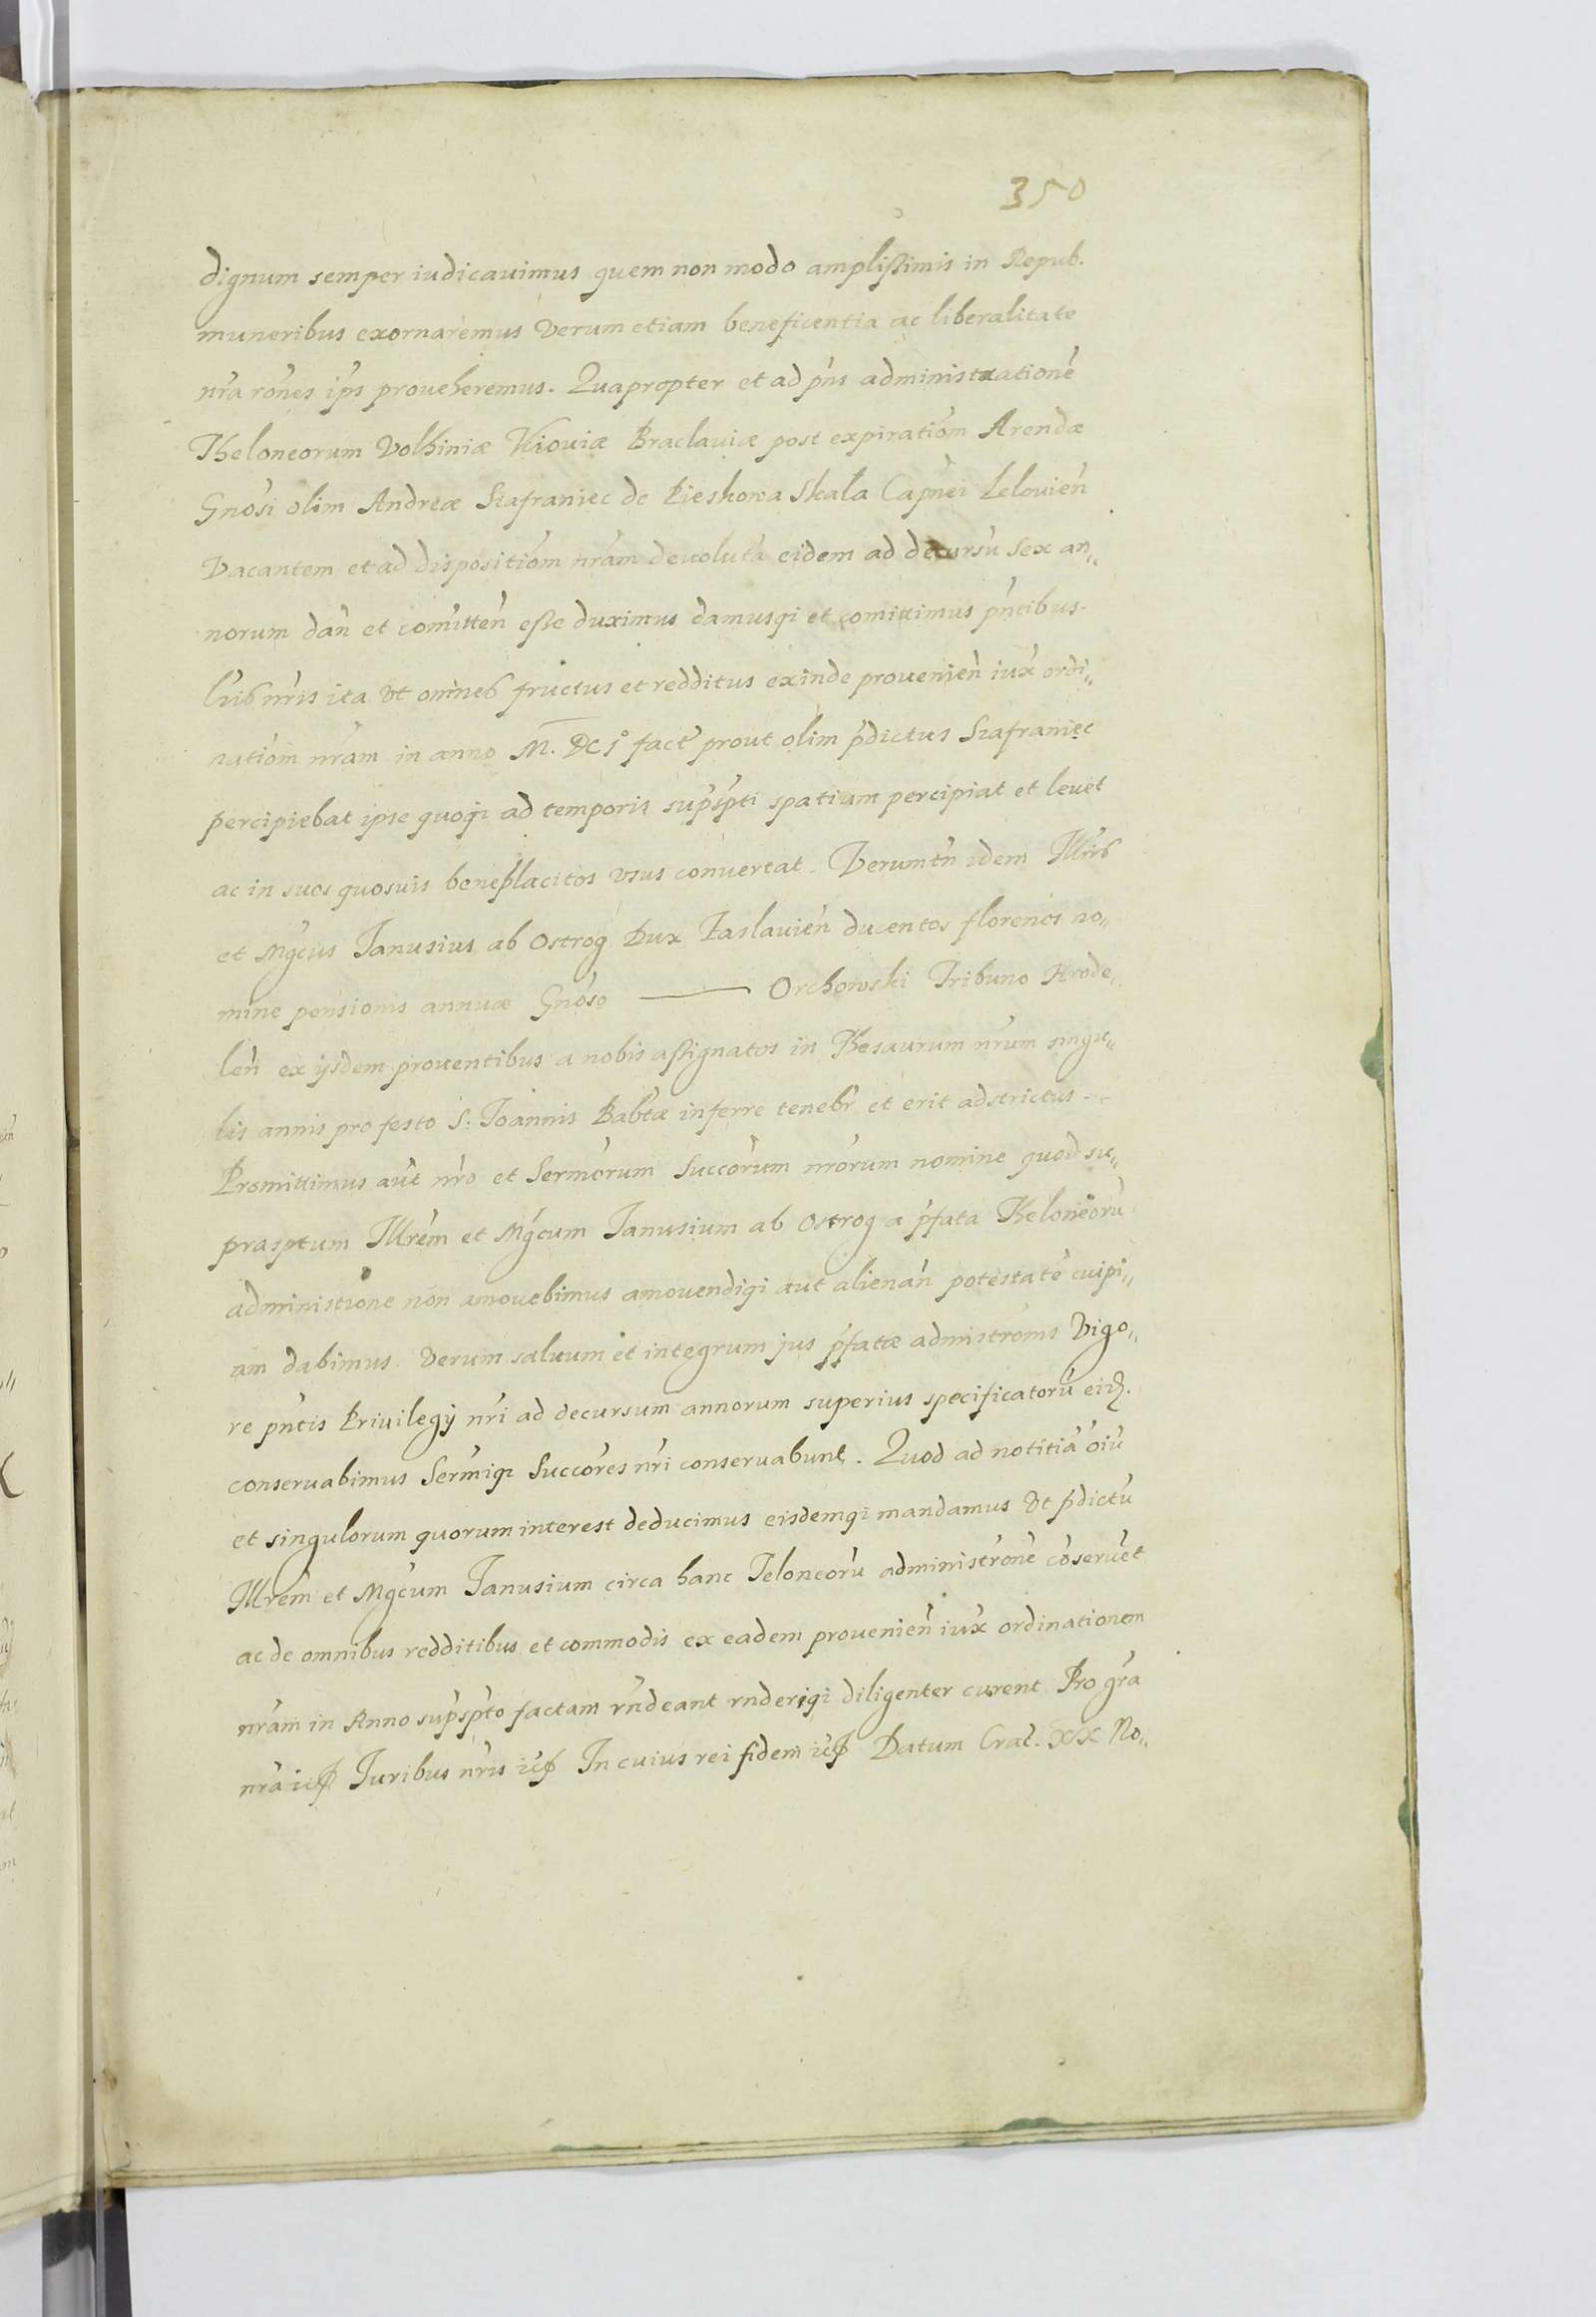 350
dignum semper iudicauimus quem non modo amplissimis in Repub.
muneribus exornaremus Verum etiam beneficentia ac liberalitate
nŕa rónes ips proueheremus. Quapropter et ad pńs administrationé
Theloneorum Volhiniæ Kiouiæ Braclauiæ post expiratióm Arendæ
Gnósi olim Andreæ Szafraniec de Pieskowa Skała Capnéi Lelouień
Vacantem et ad dispositióm nrám deuolutá eidem ad decursú sex an„
norum dań et comítteń esse duximus damusqi et comittimus pńtibus
lŕis nŕis ita Vt omnes fructus et redditus exinde prouenień iux́ ordi„
natióm nrám in anno M. DC jº fact prout olim pŕdictus Szafraniec
percipiebat ipse quoqi ad temporis supŕspti spatium percipiat et leuet
ac in suos quosuis beneplacitos Vsus conuertat. Verumtń idem Illŕis
et Mgćus Janusius ab Ostrog Dux Zaslauień ducentos florenos no„
mine pensionis annuæ Gnóso —— Orchowski Tribuno Hrode„
leń ex ijsdem prouentibus a nobis assignatos in Thesaurum nŕum singu„
lis annis pro festo S: Joannis Babtæ inferre tenebŕ et erit adstrictus
Promittimus aút nŕo et Sermórum Succórum nrórum nomine quod su„
praspτum Illrém et Mgćum Janusium ab Ostrog a pŕfata Theloneorú
administione non amouebimus amouendiqi aut alienań potestaté cuipi„
am dabimus. Verum saluum et integrum jus pŕfatæ admistrónis Vigo„
re pńtis Priuilegij nŕi ad decursum annorum superius specificatorú eid.
conseruabimus Sermíqi Succóres nŕi conseruabunt. Quod ad notitiá óiú
et singulorum quorum interest deducimus eisdemqi mandamus Vt pŕdictú
Illrém et Mgćum Janusium circa hanc Teloneorú administróné cóseruét
ac de omnibus redditibus et commodis ex eadem prouenień iux́ ordinationem
nrám in Anno supŕspto factam rńdeant rnderiqi diligenter curent Pro gŕa
nŕa Juribus nŕis In cuius rei fidem Datum Crac. XX No„